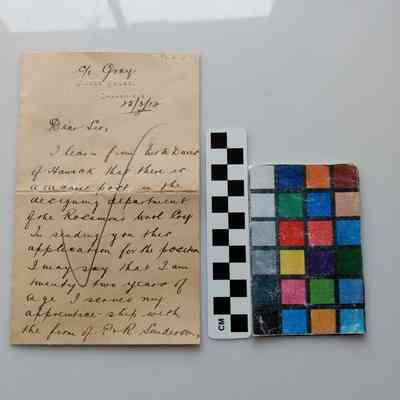 c/o Gray
Dear Sir,
I learn from
of Hawick that there is
a vacant post in the
designing department
of the Wool Coy
In sending you this
application for the position
I may say that I am
twenty two years of
age I served my
apprentice-ship with
the firm of P & R Sanderson,
CM